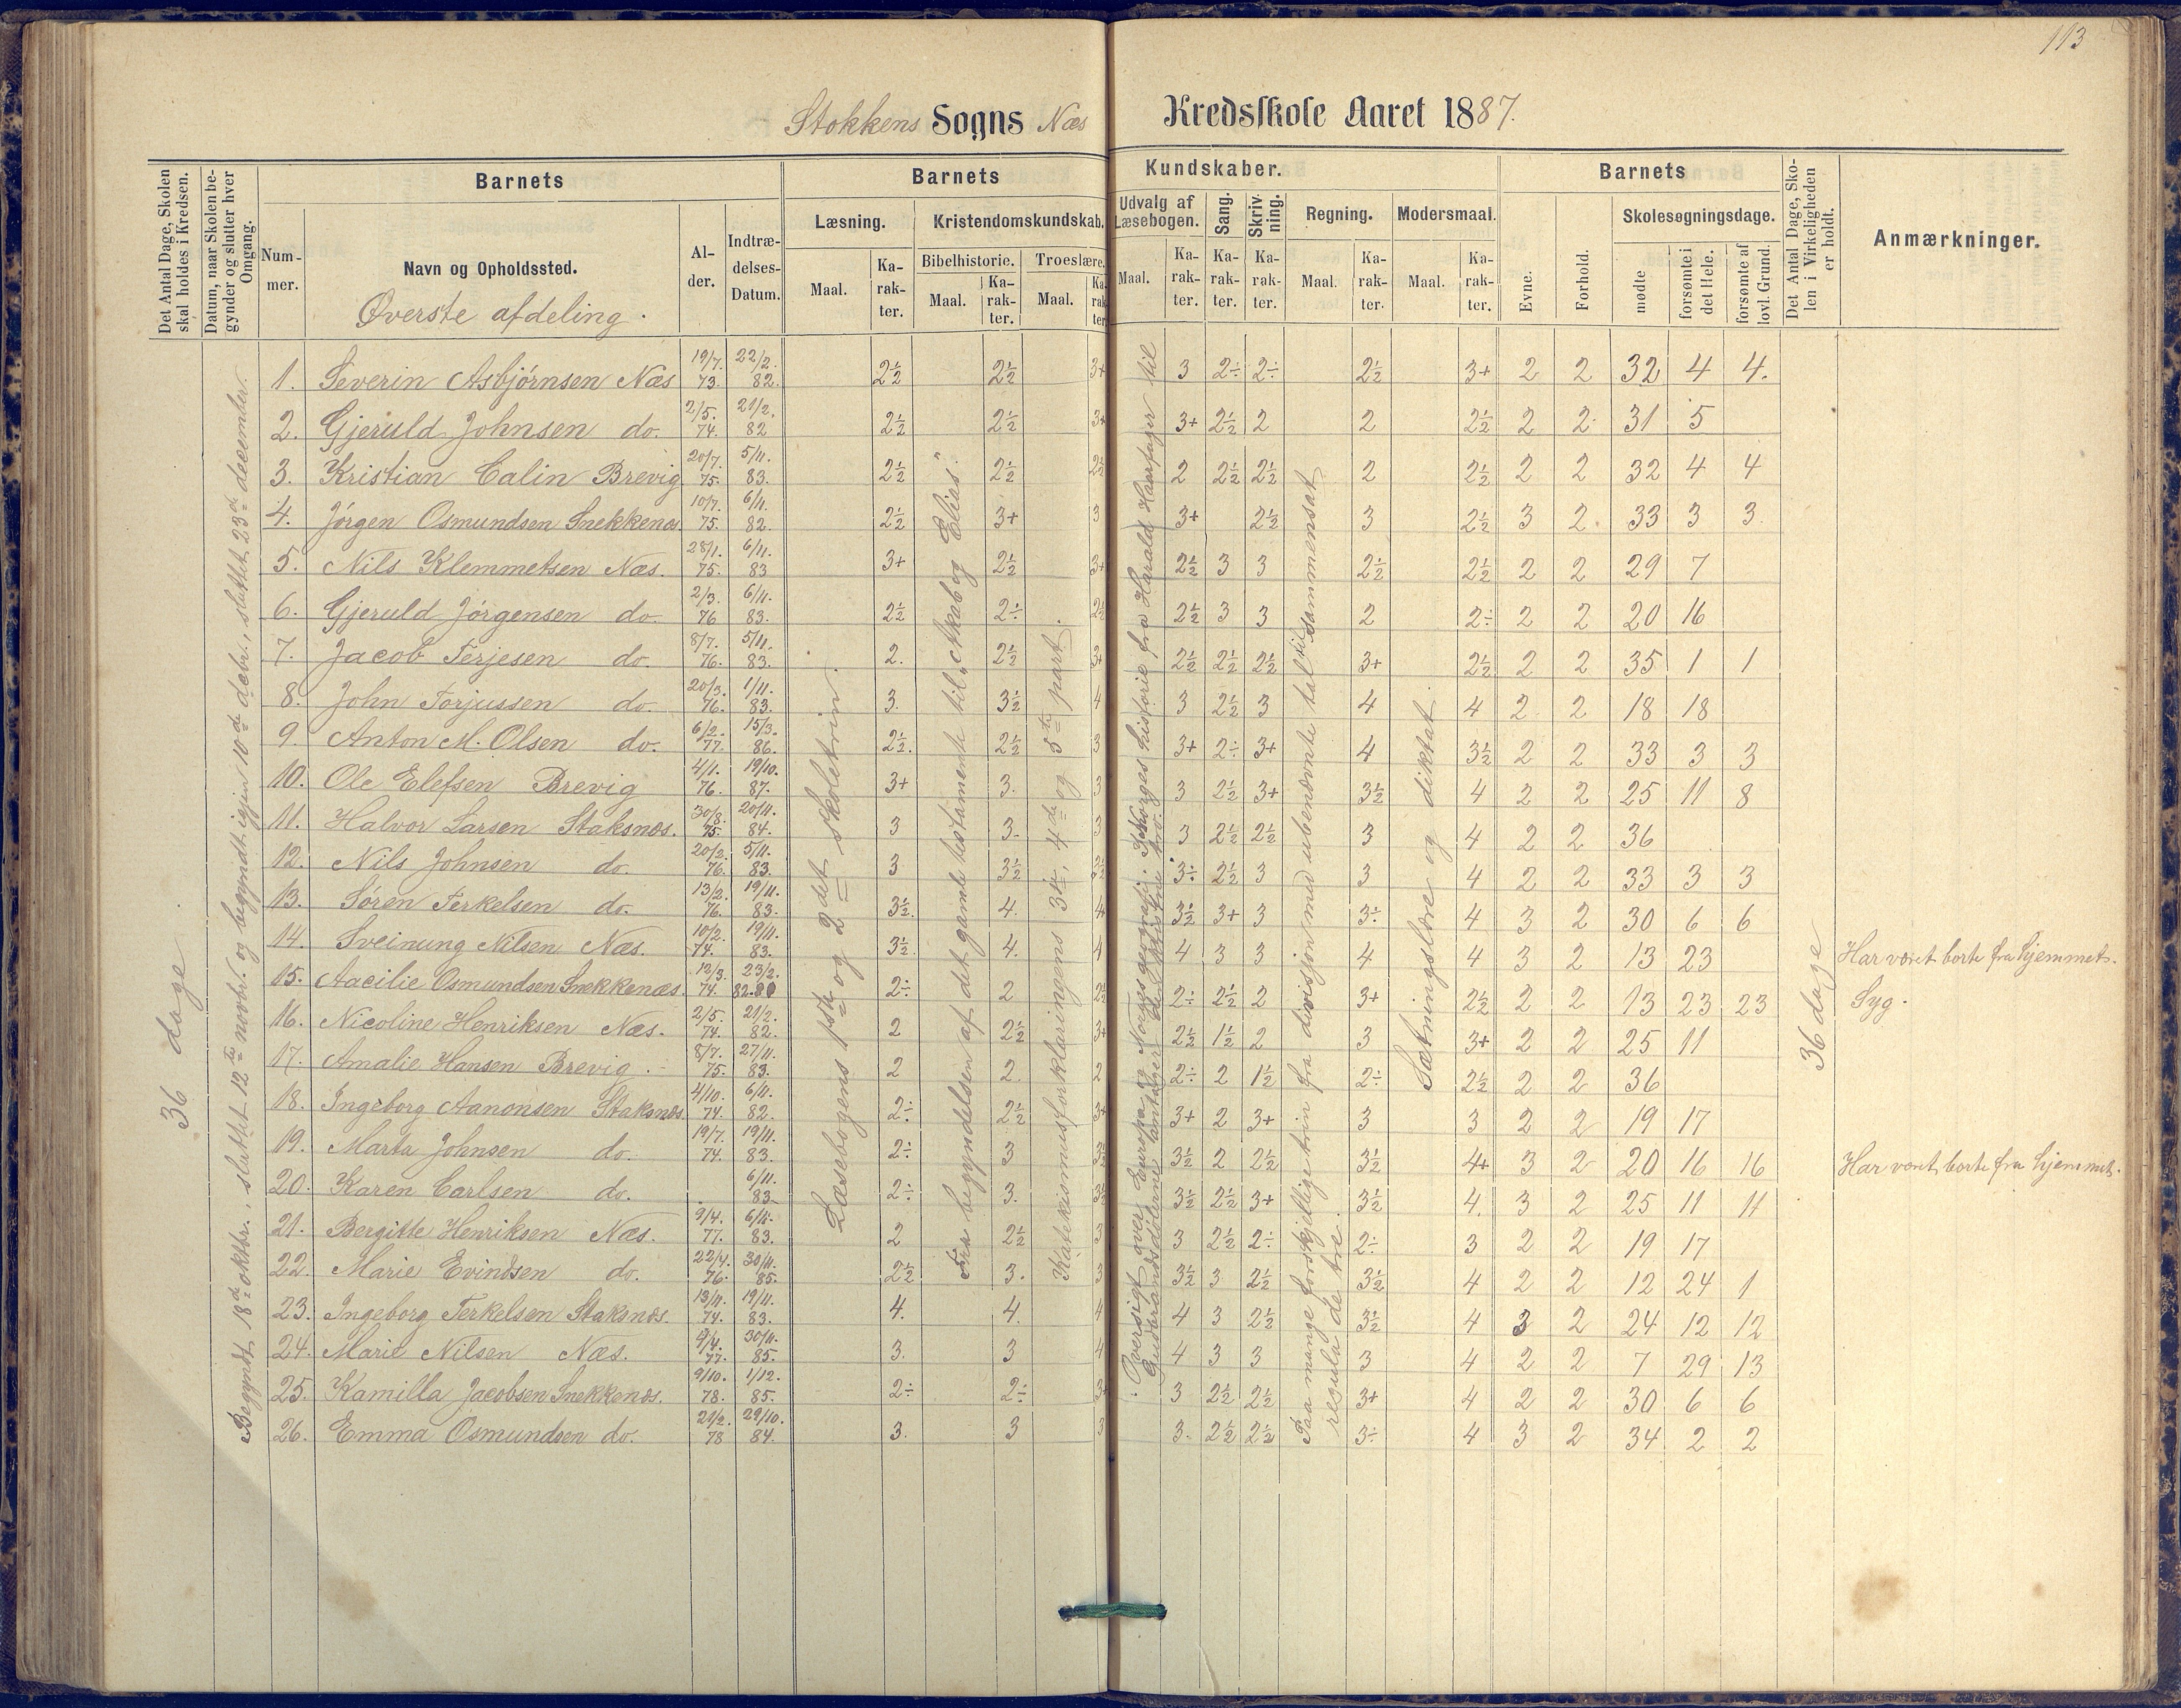 113
Stokkens Sogns Næs Kredsskole Aaret 1887.
Det Antal Dage, Skolen skal holdes i Kredsen.
Datum, naar Skolen begynder og slutter hver Omgang.
Barnets
Barnets Kundskaber.
Barnets
Det Antal Dage, Skolen i Virkeligheden er holdt.
Anmærkninger.
Nummer.
Navn og Opholdssted.
Alder.
Indtrædelses-Datum.
Læsning.
Kristendomskundskab.
Udvalg af Læsebogen.
Sang.
Skrivning.
Regning.
Modersmaal.
Evne.
Forhold.
Skolesøgningsdage.
Bibelhistorie.
Troeslære.
Maal.
Karakter.
mødte
forsømte i det Hele.
forsømte af lovl. Grund.
Øverste afdeling.
36 dage.
Begyndt 18de oktbr., sluttet 12te novbr. og begyndt igjen 10de debr., sluttet 23de december.
Læsebogens 1ste og 2det skoletrin.
Fra begyndelsen af det gamle testamente til „Akab og Elias".
Katekismusforklaringens 3die, 4de og 5te part.
Paa mange forskjellige trin fra divisjon med ubenævnte tal til sammensat regula de tre.
Sætningslære og diktat.
36 dage
1. Severin Asbjørnsen Næs 19/7. 73. 22/2. 82. 2½ 2½ 3+ 3 2÷ 2÷ 2½ 3+ 2 2 32 4 4.
2. Gjeruld Johnsen do. 2/5. 74. 21/2. 82 2½ 2½ 3+ 3+ 2½ 2 2 2½ 2 2 31 5
3. Kristian Calin Brevig 20/7. 75. 5/11. 83. 2½ 2½ 2½ 2 2½ 2½ 2 2½ 2 2 32 4 4
4. Jørgen Osmundsen Snekkenæs. 10/7. 75. 6/11. 82. 2½ 3+ 3 3+ 2½ 3 2½ 3 2 33 3 3
5. Nils Klemmetsen Næs. 28/1. 75. 6/11. 83 3+ 2½ 3+ 2½ 3 3 2½ 2½ 2 2 29 7
6. Gjeruld Jørgensen do 2/3. 76 6/11. 83. 2½ 2÷ 2½ 2½ 3 3 2 2÷ 2 2 20 16
7. Jacob Terjesen do. 8/7. 76. 5/11. 83. 2. 2½ 3+ 2½ 2½ 2½ 3+ 2½ 2 2 35 1 1
8. John Torjussen do. 20/3. 76. 1/11. 83. 3. 3½ 4 3 2½ 3 4 4 2 2 18 18
9. Anton M. Olsen do. 6/2. 77. 15/3. 86. 2½. 2½ 3 3+ 2÷ 3+ 4 3½ 2 2 33 3 3
10. Ole Elefsen Brevig 4/1. 76. 19/10. 87. 3+ 3. 3 3 2½ 3+ 3½ 4 2 2 25 11 8
11. Halvor Larsen Staksnæs. 30/8. 75. 20/11. 84. 3 3. 3 3 2½ 2½ 3 4 2 2 36
12. Nils Johnsen do. 20/2. 76. 5/11. 83. 3 3½ 3½ 3÷ 2½ 3 3 4 2 2 33 3 3
13. Søren Terkelsen do. 13/2. 76. 19/11. 83. 3½. 4. 4 3½ 3+ 3 3÷ 4 3 2 30 6 6
14. Sveinung Nilsen Næs. 10/2. 74. 19/11. 83. 3½. 4. 4 4 3 3 4 4 3 2 13 23 Har været borte fra hjemmet.
15. Aacilie Osmundsen Snekkenæs. 12/3. 74. 23/2. 82. 2÷ 2 2½ 2÷ 2½ 2 3+ 2½ 2 2 13 23 23 Syg.
16. Nicoline Henriksen Næs. 2/5. 74. 21/2. 82. 2 2½ 3+ 2½ 1½ 2 3 3+ 2 2 25 11
17. Amalie Hansen Brevig. 8/7. 75. 27/11. 83. 2 2 2 2÷ 2 1½ 2÷ 2½ 2 2 36
18. Ingeborg Aanonsen Staksnæs 4/10. 74. 6/11. 82. 2÷ 2½ 3+ 3+ 2 3+ 3 3 2 2 19 17
19. Marta Johnsen do. 19/7. 74. 19/11. 83. 2÷ 3 3½ 3½ 2 2½ 3½ 4+ 3 2 20 16 16 Har været borte fra hjemmet.
20. Karen Carlsen do. 6/11. 83. 2÷ 3. 3½ 3½ 2½ 3+ 3½ 4. 3 2 25 11 11
21. Bergitte Henriksen Næs. 9/4. 77. 6/11. 83. 2 2½ 3 3 2½ 2÷ 2÷ 3 2 2 19 17
22. Marie Evindsen do. 22/4. 76. 30/11. 85. 2½ 3. 3 3½ 3 2½ 3½ 4 2 2 12 24 1
23. Ingeborg Terkelsen Staksnæs. 13/11. 74. 19/11. 83. 4. 4. 4 4 3 2½ 3½ 4 3 2 24 12 12
24. Marie Nilsen Næs. 9/4. 77. 30/11. 85. 3. 3 4 4 3 3 3 4 2 2 7 29 13
25. Kamilla Jacobsen Snekkenæs. 9/10. 78. 1/12. 85. 2÷ 2÷ 3+ 3 2½ 2½ 3+ 4 2 2 30 6 6
26. Emma Osmundsen do. 21/2. 78 29/10. 84. 3. 3 3 3. 2½ 2½ 3÷ 4 3 2 34 2 2